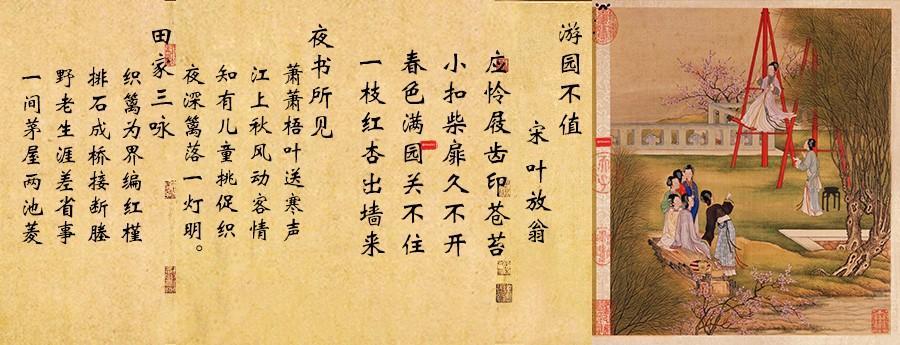 游园不值
宋 叶放翁
应怜屐齿印苍苔
小扣柴扉久不开
春色满园关不住
一枝红杏出墙来
夜书所见
萧萧梧叶送寒声
江上秋风动客情
知有儿童挑促织
夜深篱落一灯明。
田家三咏
织篱为界编红槿
排石成桥接断塍
野老生涯差省事
一间茅屋两池菱